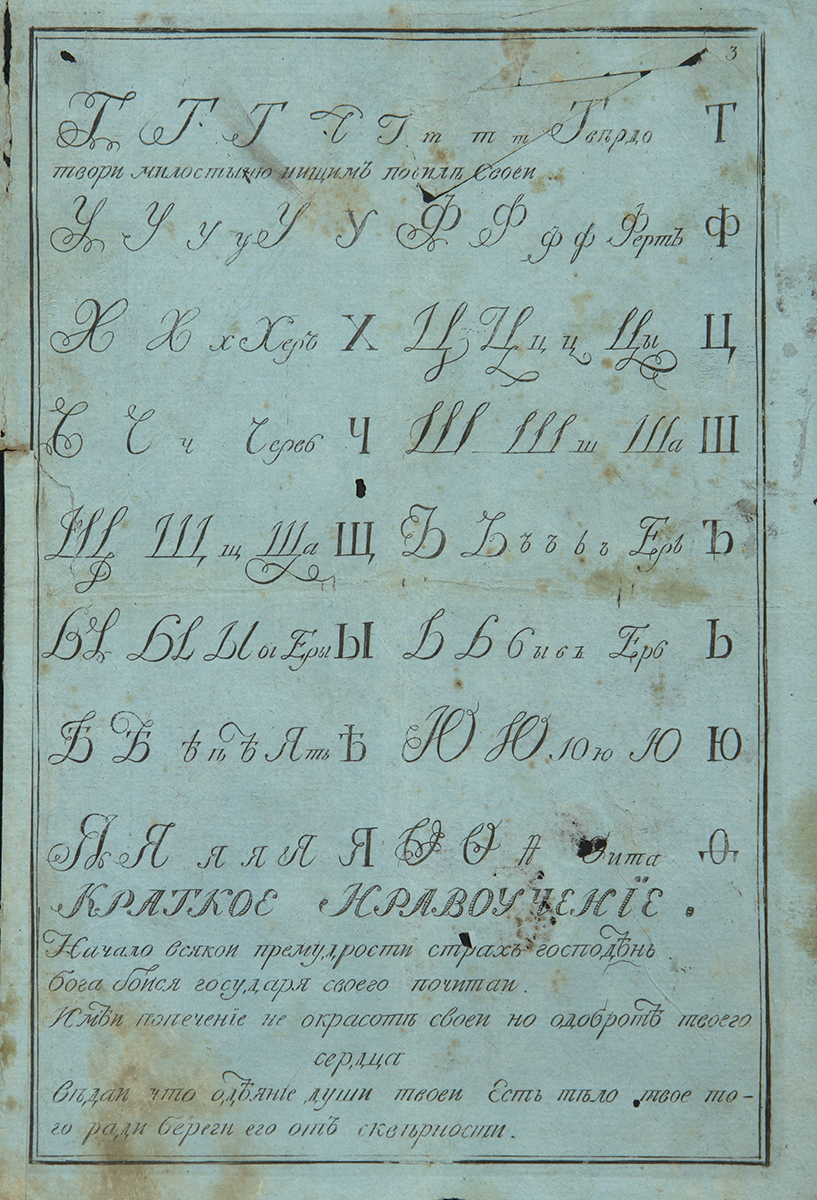 3
Т Т Т Т Т т т т Твѣрдо Т
твори милостыню нищимъ посилѣ своеи
У У у у У У Ф Ф ф ф Фертъ Ф
Х Х х Херъ Х Ц Ц ц ц Цы Ц
Ч Ч ч Червь Ч Ш Ш ш Ша Ш
Щ Щ щ Ща Щ Ъ Ъ ъ ъ ь ъ Еръ Ъ
Ы Ы Ы ы Еры Ы Ь Ь ь ь ь ъ Ерь Ь
Ѣ Ѣ ѣ ѣ ѣ Ять Ѣ Ю Ю Ю ю Ю Ю
Я Я я я Я Я Ѳ Ѳ Ѳита Ѳ
КРАТКОЕ НРАВОУЧЕНІЕ .
Начало всякои премудрости страхъ господѣнь .
бога боися государя своего почитаи .
Имѣи попечение не окрасотѣ своеи но одобротѣ твоего
сердца
вѣдаи что одѣяніе души твоеи Есть тѣло твое то-
го ради береги его отъ сквѣрности .